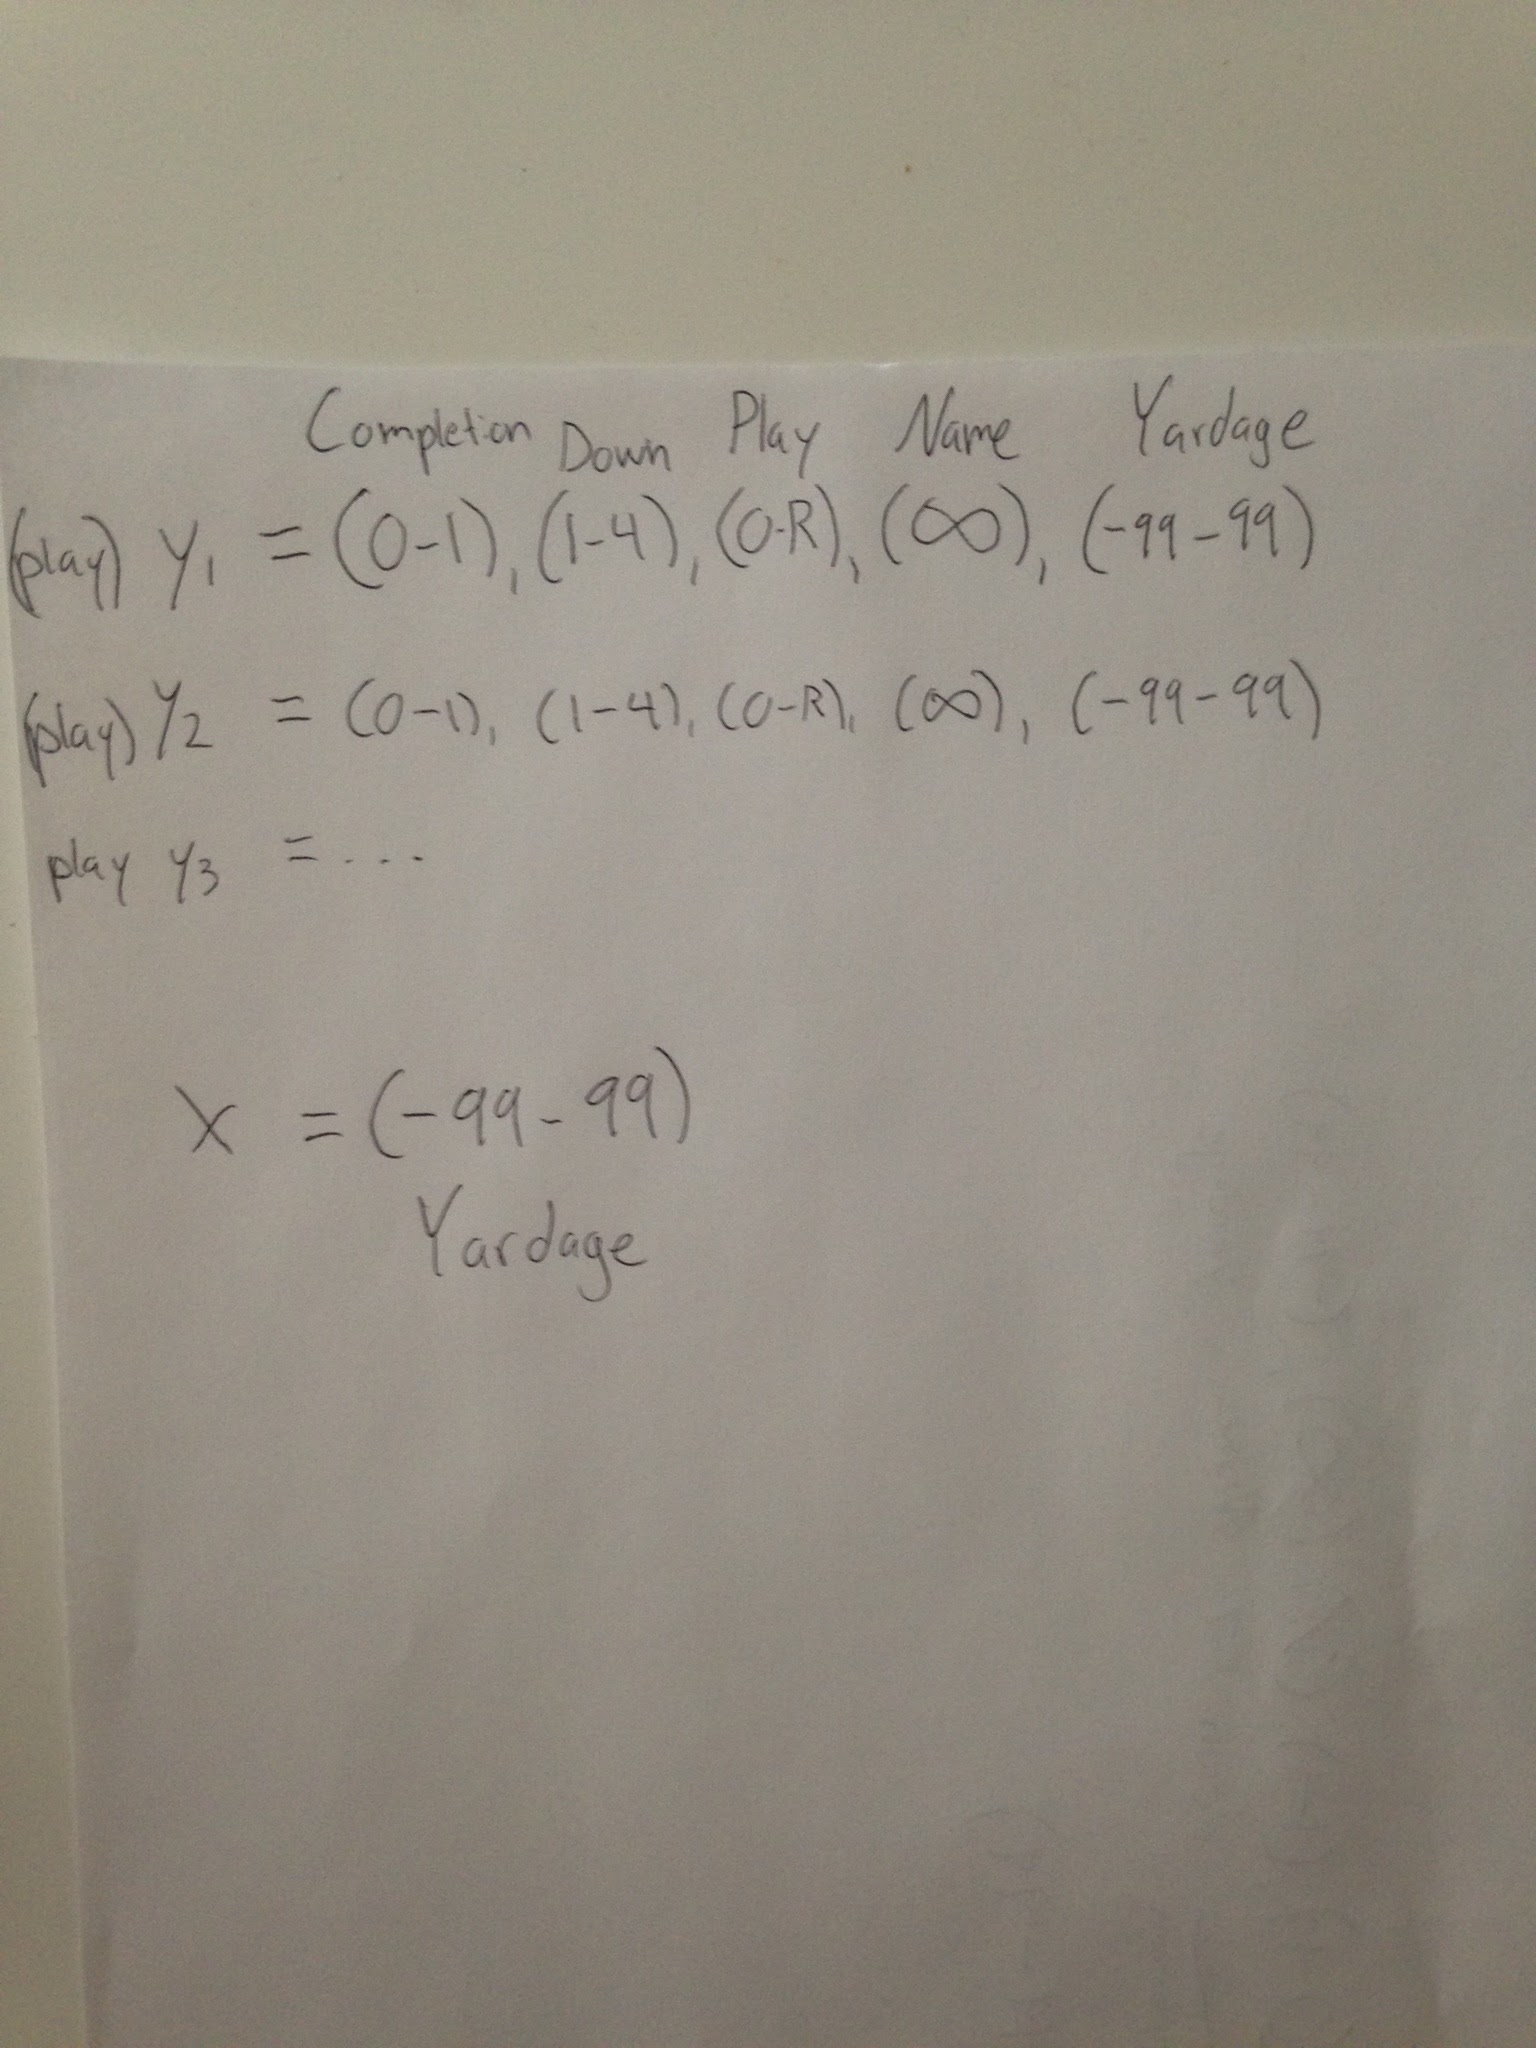 Completion Down Play Name Yardage
(play) y1 = (0-1), (1-4), (0-R), (∞), (-99-99)
(play) y2 = (0-1), (1-4), (0-R), (∞), (-99-99)
play y3 = ...
X = (-99-99)
Yardage